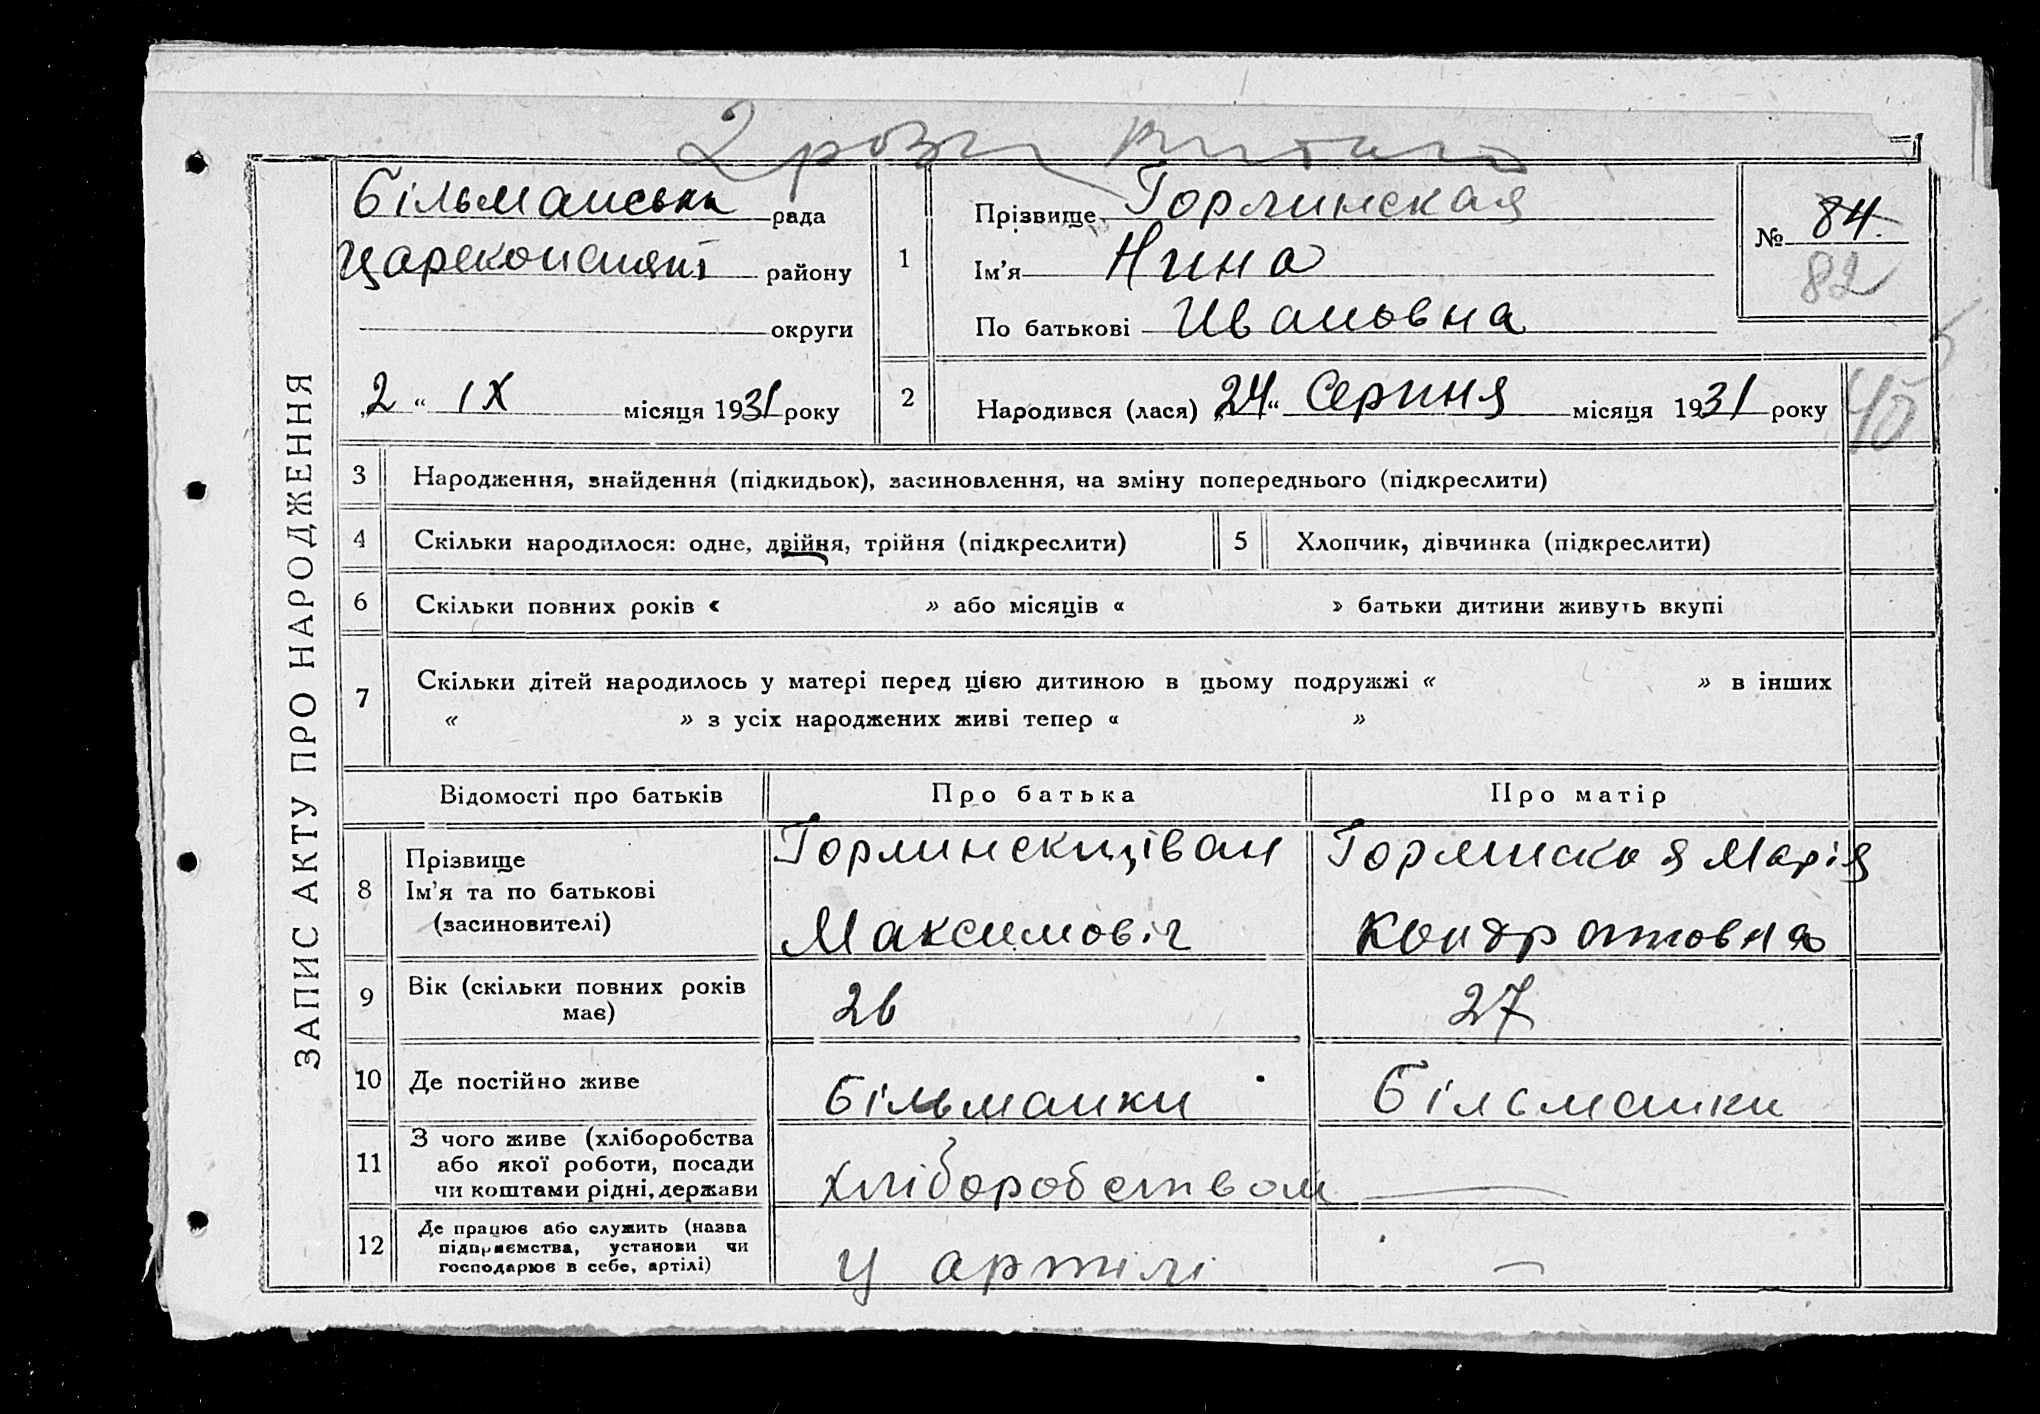 ЗАПИС АКТУ ПРО НАРОДЖЕННЯ
Більманська рада
району
округи
„2“ IX місяця 1931 року
1
Прізвище Горлинская
Ім'я Нина
По батькові Ивановна
№ 84
82
2
Народився (лася) „24“ Серпня місяця 1931 року
40
3 Народження, знайдення (підкидьок), засиновлення, на зміну попереднього (підкреслити)
4 Скільки народилося: одне, двійня, трійня (підкреслити) 5 Хлопчик, дівчинка (підкреслити)
6 Скільки повних років « » або місяців « » батьки дитини живуть вкупі
7 Скільки дітей народилось у матері перед цією дитиною в цьому подружжі « » в інших
« » з усіх народжених живі тепер « »
Відомості про батьків Про батька Про матір
8 Прізвище
Ім'я та по батькові
(засиновителі)
Горлинский Іван
Максимовіч
Горлинская Марія
Кондратовна
9 Вік (скільки повних років
має)
26 27
10 Де постійно живе Більманки Більманки
11 З чого живе (хліборобства
або якої роботи, посади
чи коштами рідні, держави
хліборобством —
12 Де працює або служить (назва
підприємства, установи чи
господарює в себе, артілі)
у артілі —